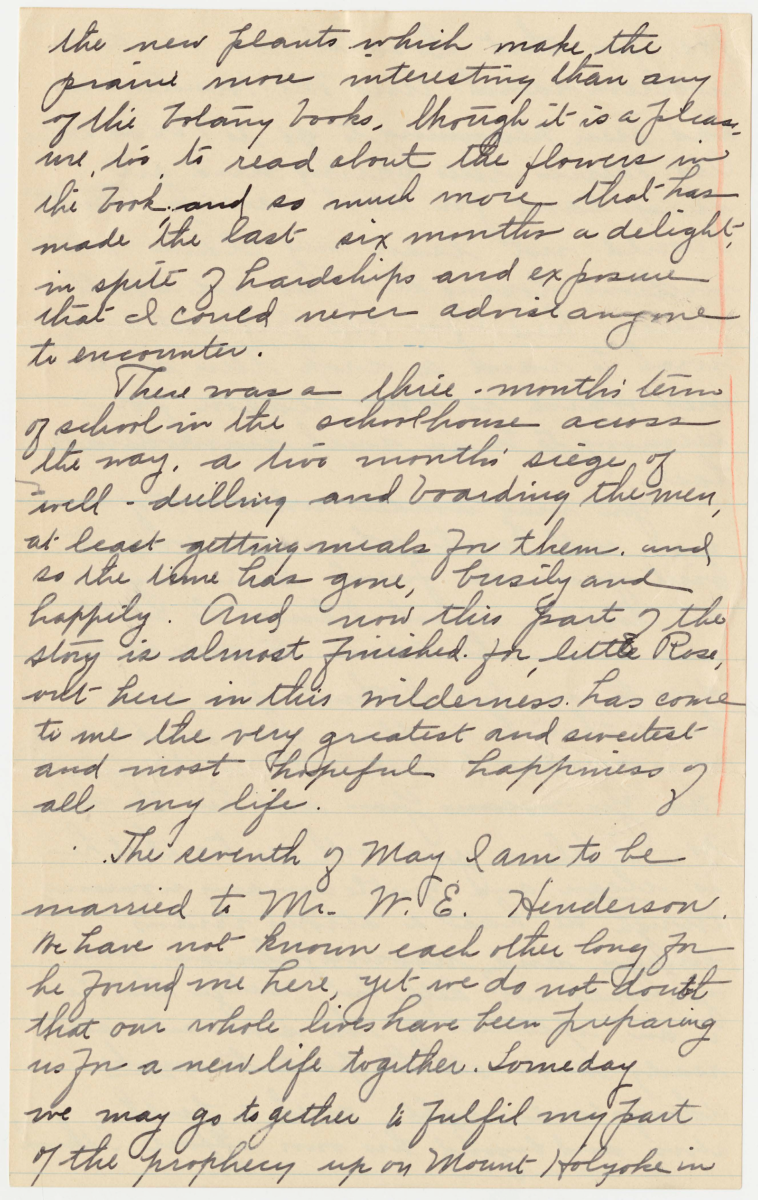 the new plants which make the
prairie more interesting than any
of the botany books, though it is a pleas-
ure, too, to read about the flowers in
the book, and so much more that has
made the last six months a delight,
in spite of hardships and exposure
that I could never advise anyone
to encounter.
There was a three-months' term
of school in the schoolhouse across
the way, a two months' siege of
well-drilling and boarding the men,
at least getting meals for them, and
so the time has gone, busily and
happily. And now this part of the
story is almost finished, for, little Rose,
out here in this wilderness has come
to me the very greatest and sweetest
and most hopeful happiness of
all my life.
The seventh of May I am to be
married to Mr. W. E. Henderson.
We have not known each other long for
he found me here, yet we do not doubt
that our whole lives have been preparing
us for a new life together. Someday
we may go together to fulfil my part
of the prophecy up on Mount Holyoke in